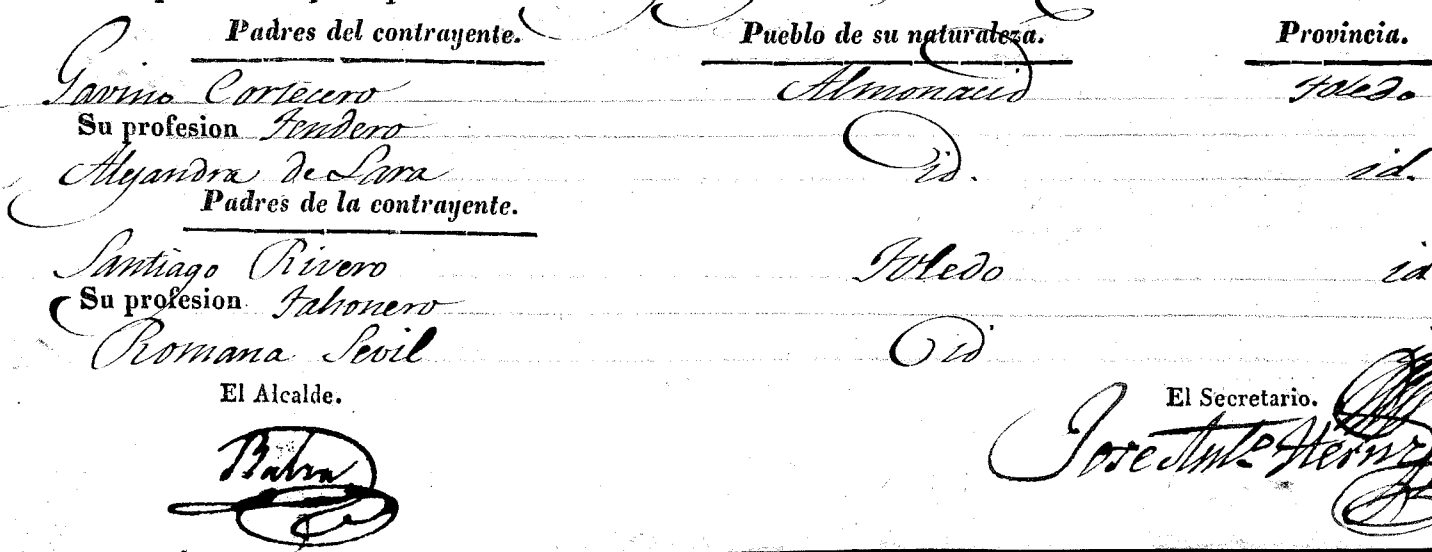 Padres del contrayente. Pueblo de su naturaleza. Provincia.
Gavino Cortecero Almonacid Toledo
Su profesion Tendero
Alejandra de Lara id. id.
Padres de la contrayente.
Santiago Rivero Toledo id
Su profesion Tahonero
Romana Sevil id
El Alcalde. El Secretario.
José Antº